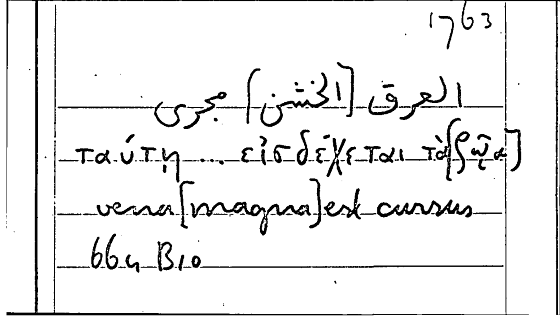 1763
العرق [الخشن] مجرى
ταύτῃ ... εἰσδέχεται τὰ [ζῷα]
vena [magna] est cursus
664 B10